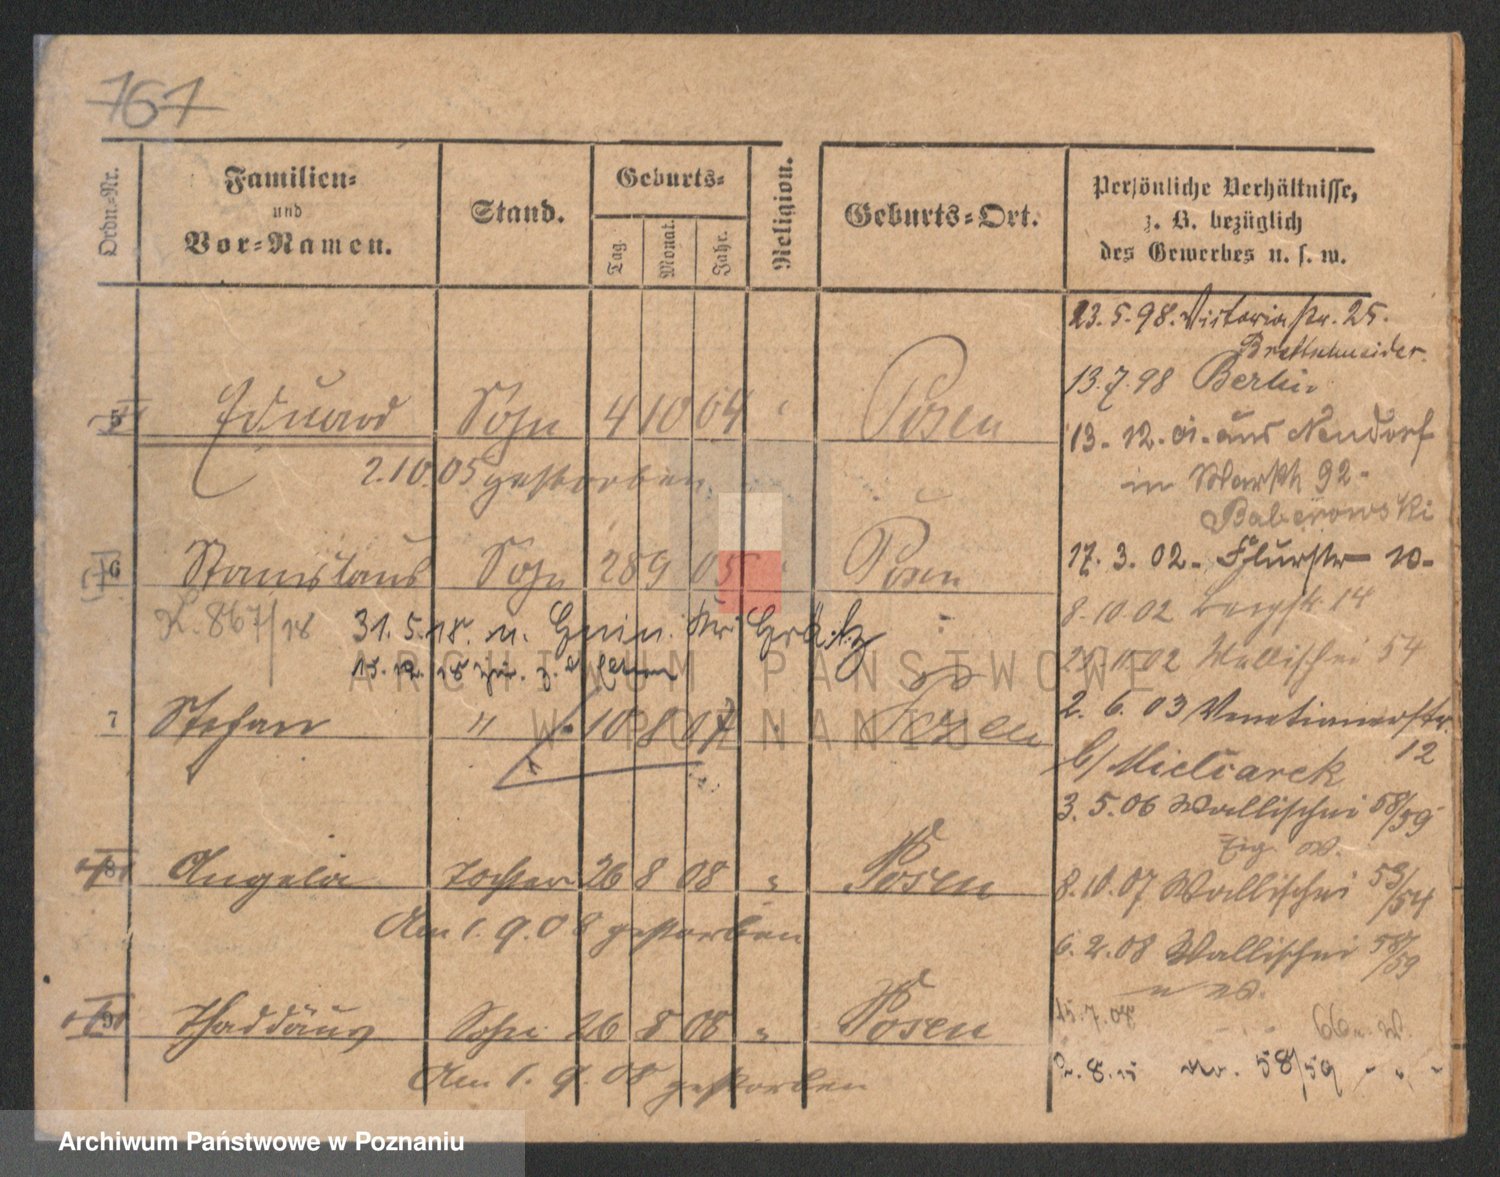 767
Ordn.=Nr.
Familien=
und
Vor=Namen.
Stand.
Geburts=
Tag.
Monat.
Jahr.
Religion.
Geburts=Ort.
Persönliche Verhältnisse,
z. B. bezüglich
des Gewerbes u. s. w.
23. 5. 98. Victoriastr. 25.
Brettschneider.
13. 7. 98 Berlin
5 Eduard Sohn 4 10 04 Posen
13. 12. 01. aus Neudorf
2. 10. 05 gestorben
in 92.
Baberowski
6 Stanislaus Sohn 28 9 05 Posen
17. 3. 02. Flurstr 10.
K. 867/18
31. 5. 18. n. Gnin. Kr. Grätz
8. 10. 02 Bergstr. 14
11. 02 Wallischei 54
7 Stefan " 10 8 07 Posen
2. 6. 03 Venetianerstr.
12
b/ Mielcarek
3. 5. 06 Wallischei 58/59
Eig.
8 Angela Tochter 26 8 08 " Posen
8. 10. 07 Wallischei 53/54
Am 1. 9. 08 gestorben
6. 2. 08 Wallischei 58/59
9 Thaddäus Sohn 26 8 08 " Posen
15. 7. 08
Am 1. 9. 08 gestorben
8. 58/59 " " "
ARCHIWUM PAŃSTWOWE
W POZNANIU
Archiwum Państwowe w Poznaniu